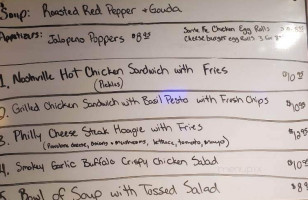 Soup: Roasted Red Pepper + Gouda
Appetizers: Jalapeno Poppers $8.95
Santa Fe Chicken Egg Rolls
Cheeseburger egg Rolls 3 for
1. Nashville Hot Chicken Sandwich with Fries
(Pickles)
Grilled Chicken Sandwich with Basil Pesto with Fresh Chips
3. Philly Cheese Steak Hoagie with Fries
onions + mushrooms, lettuce, tomato, mayo)
4. Smokey Garlic Buffalo Crispy Chicken Salad
Bowl of Soup with Tossed Salad